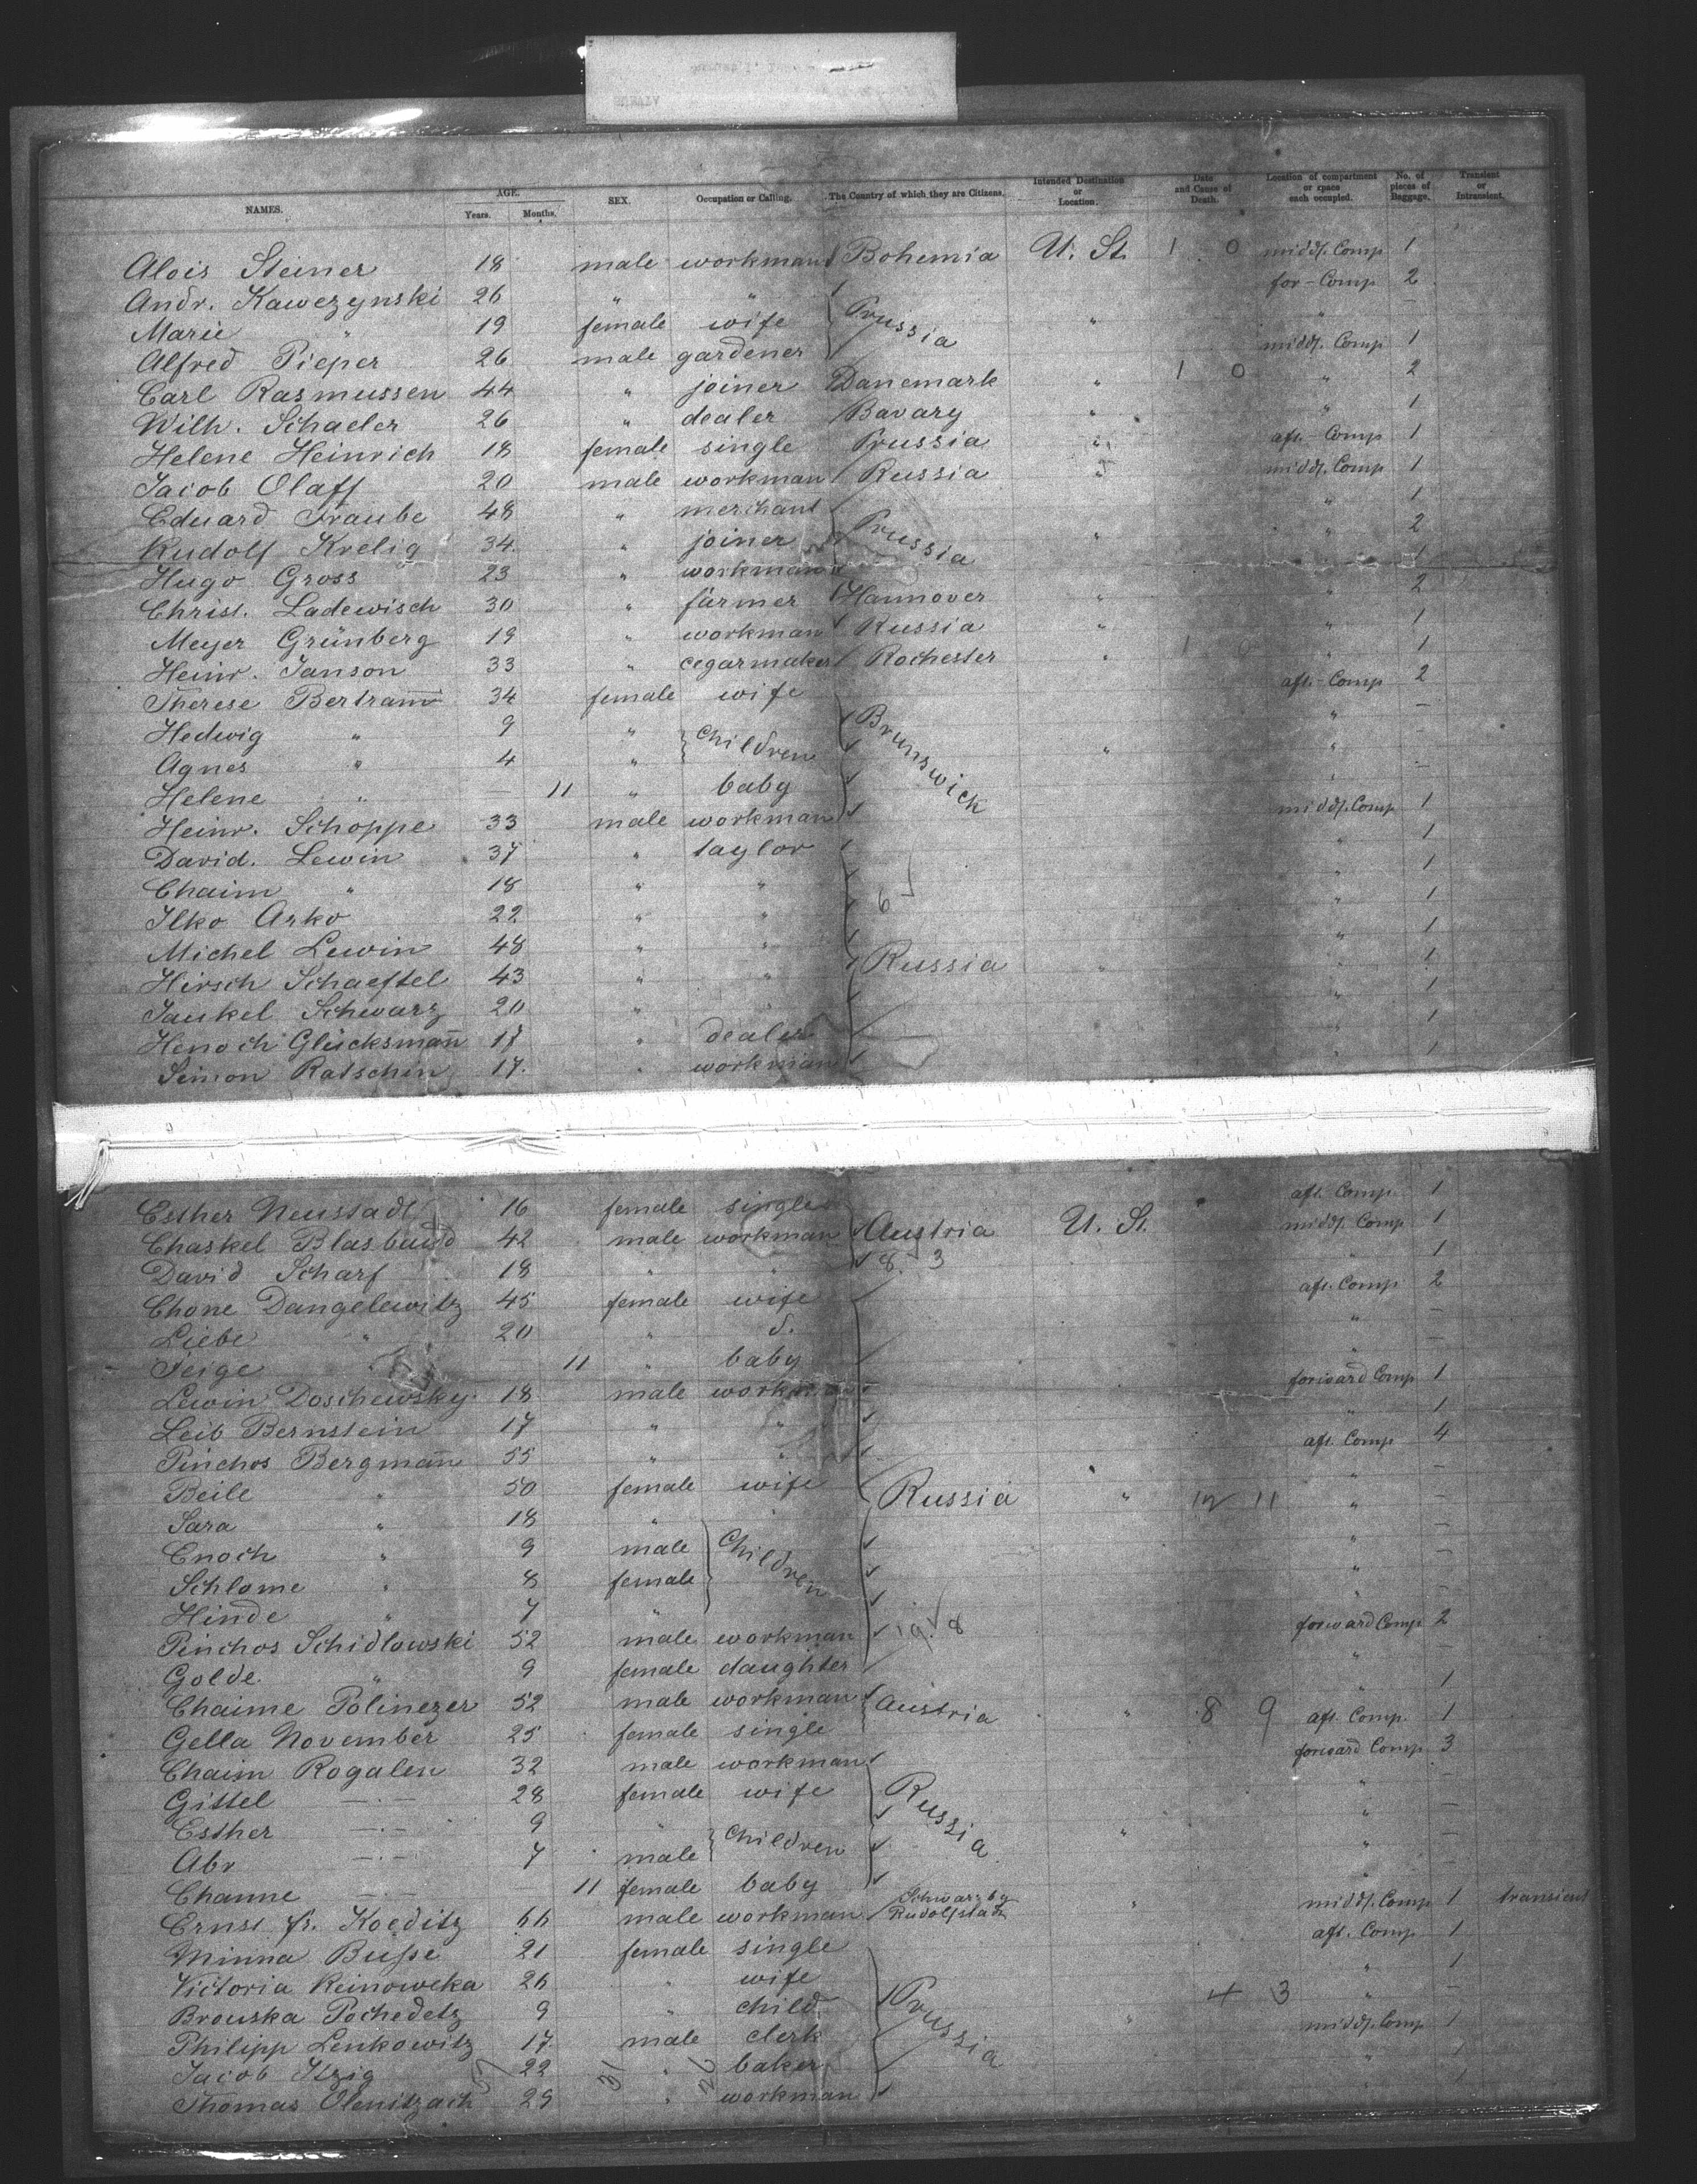 NAMES. AGE. Years. Months. SEX. Occupation or Calling. The Country of which they are Citizens. Intended Destination or Location. Date and Cause of Death. Location of compartment or space each occupied. No. of pieces of Baggage. Transient or Intransient.
Alois Steiner 18 male workman Bohemia U. St. 1 0 middl. Comp 1
Andr. Kawczynski 26 " " for-Comp 2
Marie " 19 female wife Prussia " " —
Alfred Pieper 26 male gardener middl. Comp 1
Carl Rasmussen 44 " joiner Danemark " 1 0 " 2
Wilh. Schaeler 26 " dealer Bavary " " 1
Helene Heinrich 18 female single Prussia " aft-Comp 1
Jacob Olaff 20 male workman Russia " middl. Comp 1
Eduard Traube 48 " merchant " 1
Rudolf Krelig 34 " joiner Prussia " " 2
Hugo Gross 23 " workman 1
Chriss. Ladewisch 30 " farmer Hannover " " 2
Meyer Grünberg 19 " workman Russia " " 1
Heinr. Janson 33 " cegarmaker Rochester " 1 0 " 1
Therese Bertram 34 female wife aft-Comp 2
Hedwig " 9 " children Brunswick " —
Agnes " 4 " " " —
Helene " — 11 " baby " —
Heinr. Schoppe 33 male workman middl. Comp 1
David. Lewin 37 " taylor " 1
Chaim " 18 " " 6 " 1
Ilko Arko 22 " " " 1
Michel Lewin 48 " " " 1
Hirsch Schaeftel 43 " " Russia " " 1
Jankel Schwarz 20 " " " 1
Henoch Glücksman̄ 17 " dealer " 1
Simon Ratschin 17 " workman " 1
Esther Neustadt 16 female single aft. Comp. 1
Chaskel Blasbaud 42 male workman Austria U. St. middl. Comp 1
David Scharf 18 " " 8. 3 " 1
Chone Dangelewitz 45 female wife aft. Comp 2
Liebe " 20 " d. " —
Feige " — 11 " baby " —
Lewin Doschewsky 18 male workman forward Comp 1
Leib Bernstein 17 " " " 1
Pinchos Bergman̄ 55 " " aft. Comp 4
Beile " 50 female wife Russia " —
Sara " 18 " " " 12 11 " —
Enoch " 9 male Children " —
Schlome " 8 female " —
Hinde " 7 " " —
Pinchos Schidlowski 52 male workman 19. 8 forward Comp 2
Golde " 9 female daughter " —
Chaime Polinezer 52 male workman Austria " 8 9 " 1
Gella November 25 female single aft. Comp. 1
Chaim Rogalen 32 male workman forward Comp 3
Gittel — " — 28 female wife Russia " —
Esther — " — 9 " Children " —
Abr — " — 7 male " " —
Channe — " — — 11 female baby " —
Ernst fr. Koeditz 66 male workman Schwarzbg Rudolfstadt " middl. Comp 1 transient
Minna Busse 21 female single aft. Comp 1
Victoria Reinoweka 26 " wife " 1
Brouska Pochedetz 9 " child Prussia 4 3 " —
Philipp Lenkowitz 17 male clerk " middl. Comp 1
Jacob Itzig 22 " baker " 1
Thomas Olenitzach 29 " workman " 1